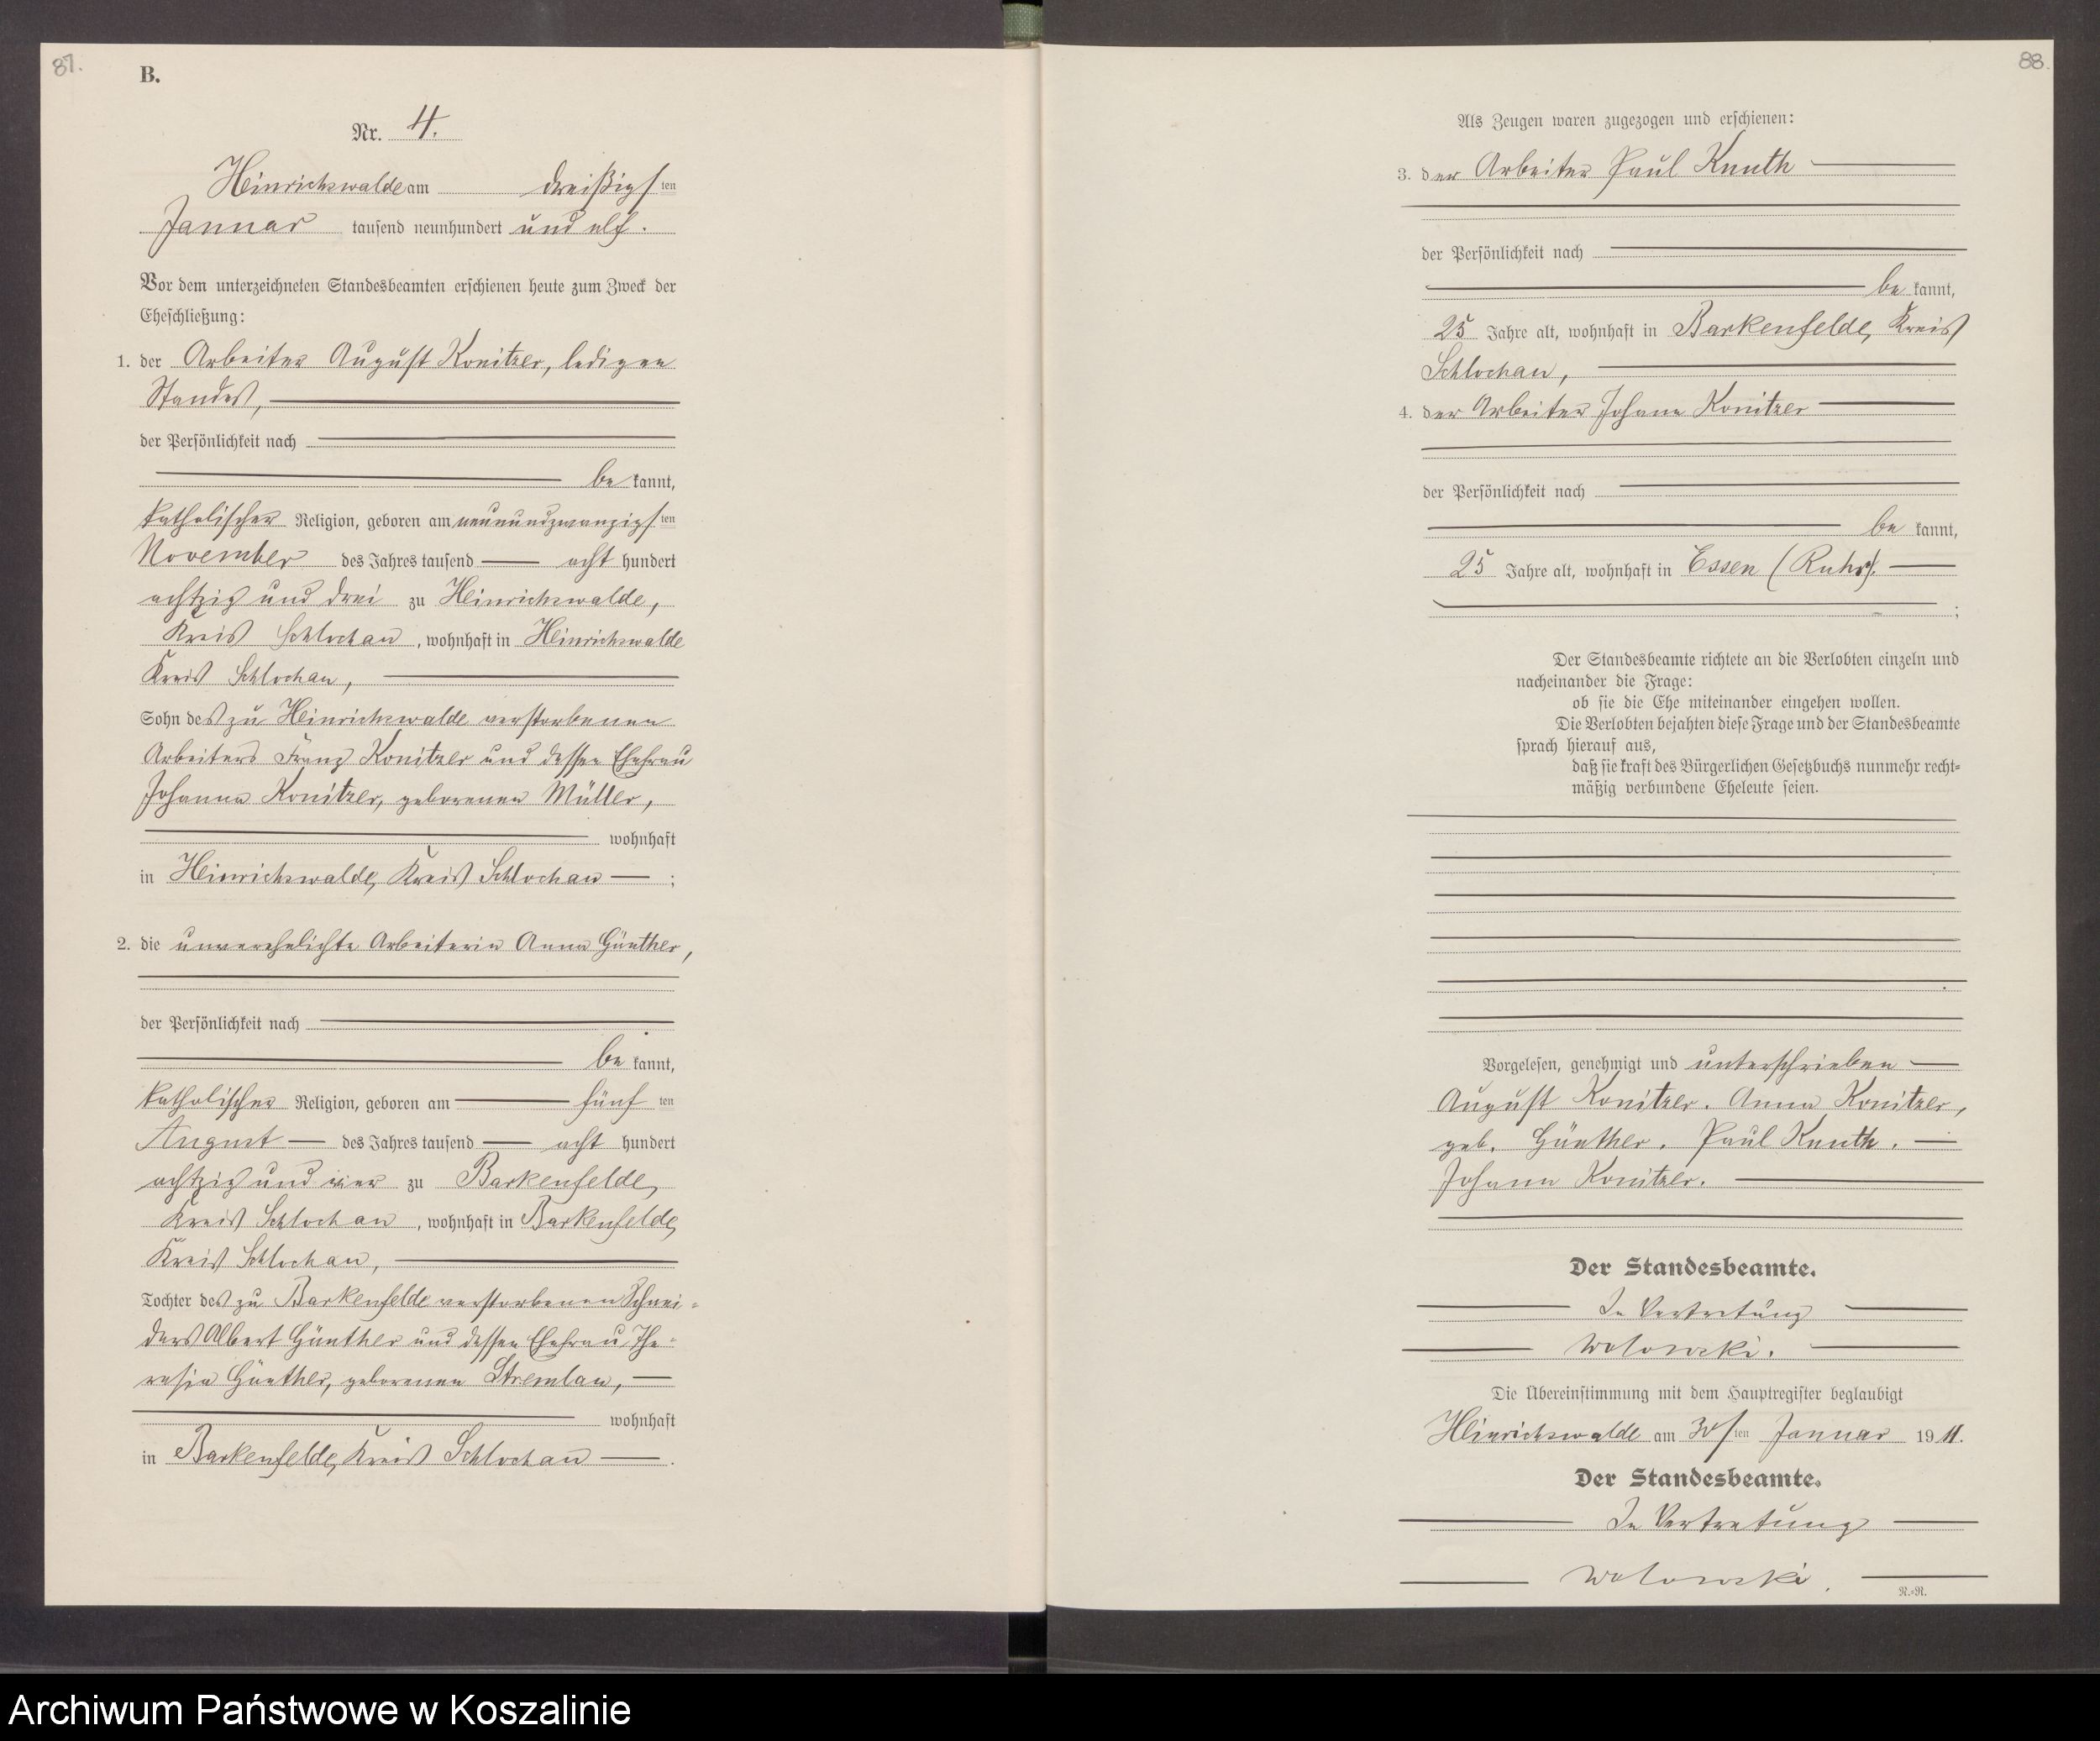 87.
B.
Nr. 4.
Heinrichswalde am dreißigsten
Januar tausend neunhundert und elf.
Vor dem unterzeichneten Standesbeamten erschienen heute zum Zweck der
Eheschließung:
1. der Arbeiter August Konitzer, ledigen
Standes,
der Persönlichkeit nach
be kannt,
katholischer Religion, geboren am neunundzwanzigsten
November des Jahres tausend acht hundert
achtzig und drei zu Heinrichswalde,
Kreis Schlochau, wohnhaft in Heinrichswalde
Kreis Schlochau,
Sohn des zu Heinrichswalde verstorbenen
Arbeiters Franz Konitzer und dessen Ehefrau
Johanna Konitzer, geborenen Müller,
wohnhaft
in Heinrichswalde, Kreis Schlochau ;
2. die unverehelichte Arbeiterin Anna Günther,
der Persönlichkeit nach
be kannt,
katholischer Religion, geboren am fünf ten
August des Jahres tausend acht hundert
achtzig und vier zu Barkenfelde,
Kreis Schlochau, wohnhaft in Barkenfelde,
Kreis Schlochau,
Tochter des zu Barkenfelde verstorbenen Schnei-
ders Albert Günther und dessen Ehefrau The-
resia Günther, geborenen Stremlau,
wohnhaft
in Barkenfelde, Kreis Schlochau .
88.
Als Zeugen waren zugezogen und erschienen:
3. der Arbeiter Paul Knuth
der Persönlichkeit nach
be kannt,
25 Jahre alt, wohnhaft in Barkenfelde, Kreis
Schlochau,
4. der Arbeiter Johann Konitzer
der Persönlichkeit nach
be kannt,
25 Jahre alt, wohnhaft in Essen (Ruhr).
;
Der Standesbeamte richtete an die Verlobten einzeln und
nacheinander die Frage:
ob sie die Ehe miteinander eingehen wollen.
Die Verlobten bejahten diese Frage und der Standesbeamte
sprach hierauf aus,
daß sie kraft des Bürgerlichen Gesetzbuchs nunmehr recht-
mäßig verbundene Eheleute seien.
Vorgelesen, genehmigt und unterschrieben
August Konitzer. Anna Konitzer,
geb. Günther. Paul Knuth.
Johann Konitzer.
Der Standesbeamte.
In Vertretung
Wolowski.
Die Übereinstimmung mit dem Hauptregister beglaubigt
Heinrichswalde am 30sten Januar 1911.
Der Standesbeamte.
In Vertretung
Wolowski.
R.-R.
Archiwum Państwowe w Koszalinie